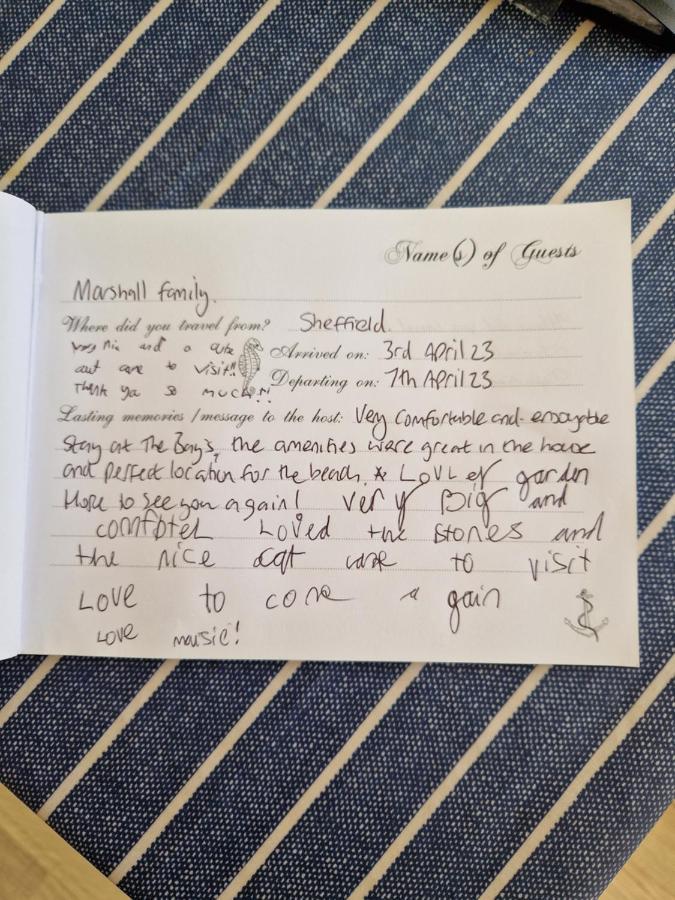 Name(s) of Guests
Marshall family.
Where did you travel from? Sheffield.
very nic and a cute
cat came to visit!!
Thank you so much!!!
Arrived on: 3rd April 23
Departing on: 7th April 23
Lasting memories / message to the host: Very comfortable and enjoyable
stay at The Bay's, the amenities were great in the house
and perfect location for the beach. * LOVLey garden
Hope to see you again! very Big and
Loved the stones and
the nice cat came to visit
LOVE to come a gain
LOVE